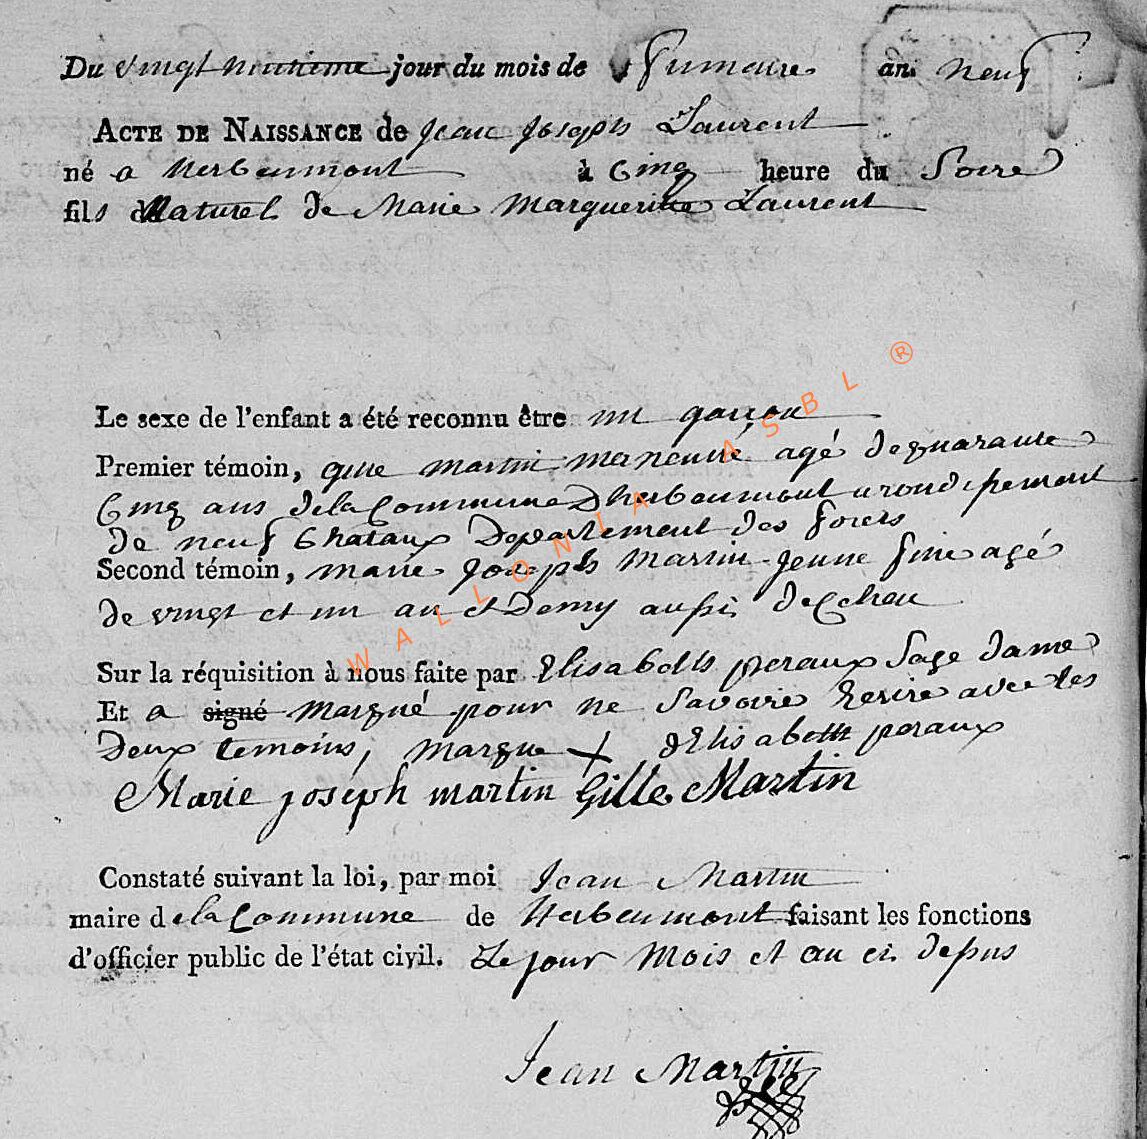 Du vingt neutieme jour du mois de frimaire an neuf
ACTE DE NAISSANCE de jean joseph Laurent
né a Herbeumont à Cinq heure du Soire
fils Naturel de Marie Margueritte Laurent
Le sexe de l'enfant a été reconnu être un garçon
Premier témoin, gille martin agé de quarante
Cinq ans dela Commune D'herbeumont arondissement
de neuf Chataux Departement des forets
Second témoin, marie joseph Martin jeune fille agé
de vingt et un an et Demy aussi de
Sur la réquisition à nous faite par Elisabeth peraux Sage dame
Et a signé marqué pour ne Savoire Ecrire avec les
Deux temoins, marque X d'Elisabetht peraux
Marie joseph martin Gille Martin
Constaté suivant la loi, par moi Jean Martin
maire dela Commune de Herbeumont faisant les fonctions
d'officier public de l'état civil. Le jour Mois et an ci depus
Jean Martin
WALLONIA ASBL ®